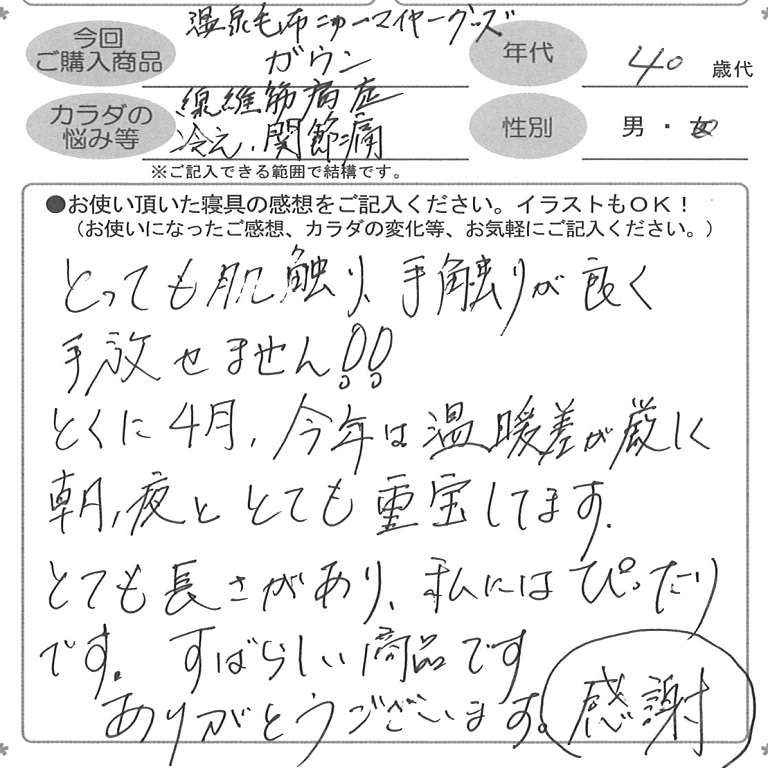 今回
ご購入商品
温泉毛布ニューマイヤーグッズ
ガウン
年代
40 歳代
カラダの
悩み等
線維筋痛症
冷え、関節痛
性別
男・女
※ご記入できる範囲で結構です。
●お使い頂いた寝具の感想をご記入ください。イラストもOK！
（お使いになったご感想、カラダの変化等、お気軽にご記入ください。）
とっても肌触り、手触りが良く
手放せません!!
とくに4月、今年は温暖差が厳しく
朝、夜ととても重宝してます。
とても長さがあり、私にはぴったり
です。すばらしい商品です
ありがとうございます。感謝